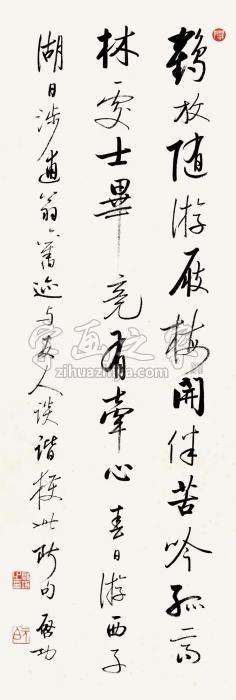 鶴放随游屐梅開伴苦吟孤高
林處士畢竟有牽心春日游西子
湖日涉逋翁舊迹与友人談諧此断句 启功
字画之家
zihuazhijia.com